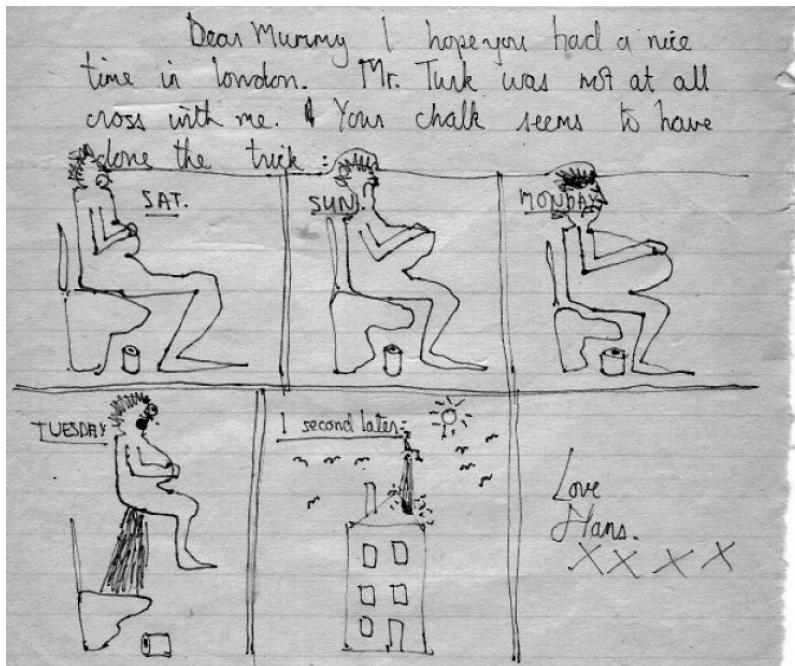 Dear Mummy I hope you had a nice
time in london. Mr. Turk was not at all
cross with me. Your chalk seems to have
done the trick :
SAT.
SUN.
MONDAY
TUESDAY
1 second later:
Love
Hans.
XXXX